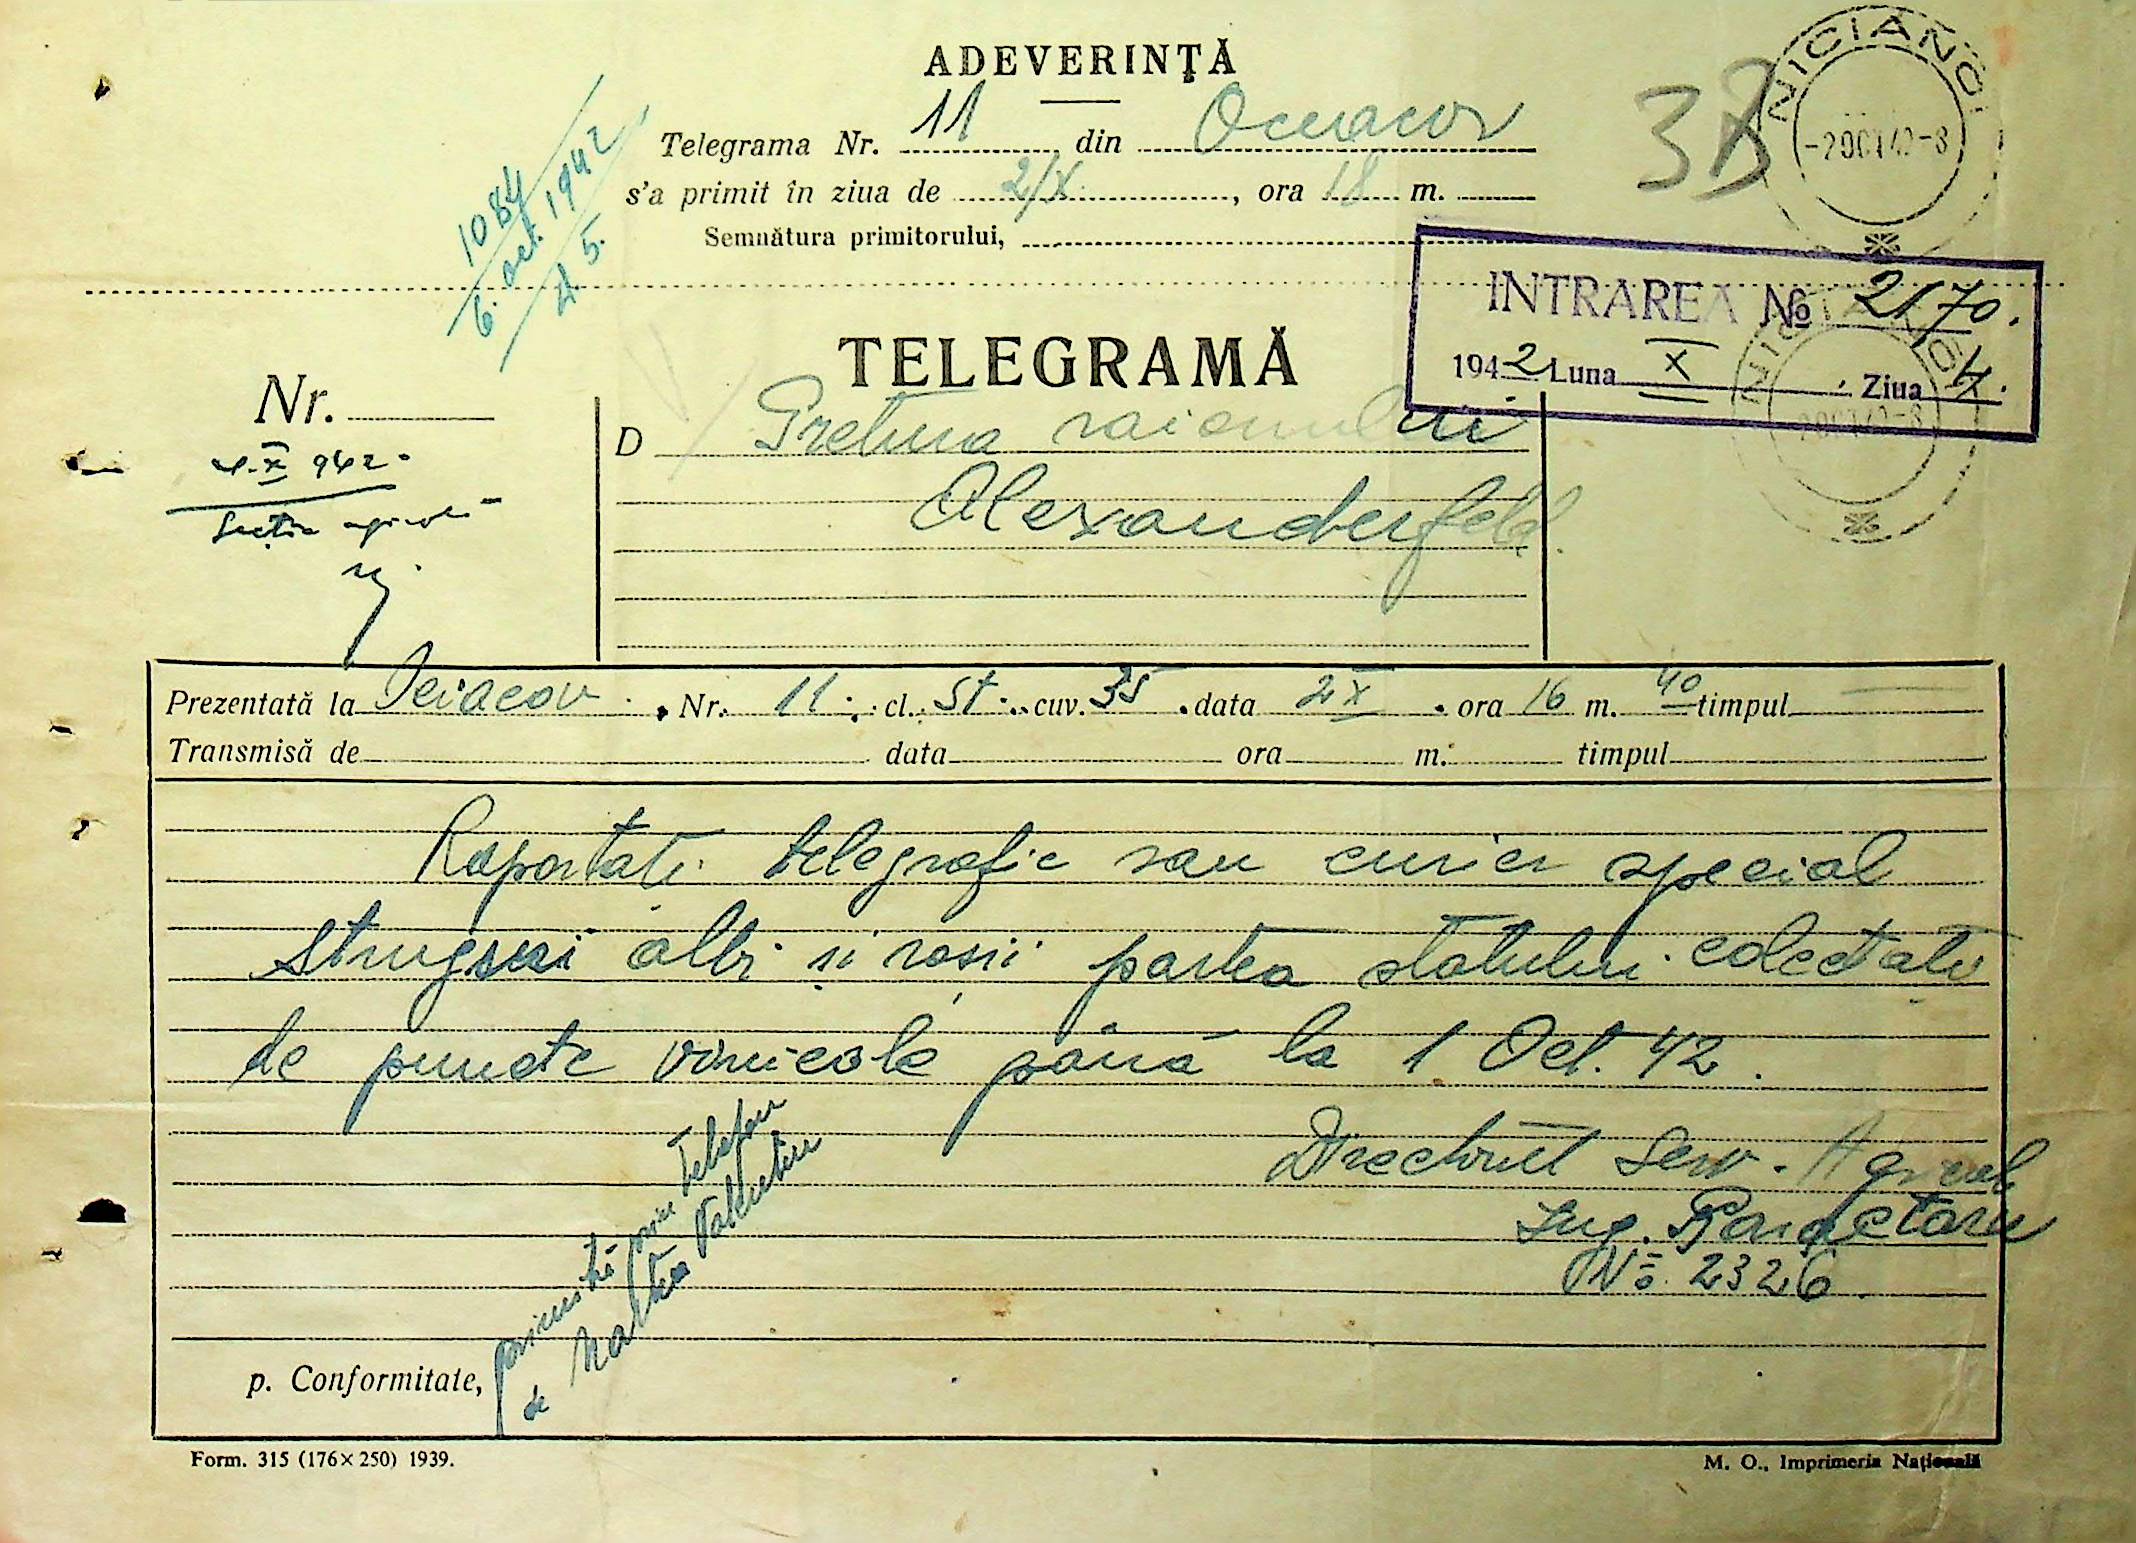 ADEVERINŢĂ
Telegrama Nr. 11 din Oceacov
s'a primit în ziua de 2/X, ora 18 m.
Semnătura primitorului,
1084
6. oct. 1942
3B
NICIANOI
-2OCT42-8
INTRAREA № 2170.
1942 Luna X Ziua 4.
TELEGRAMĂ
Nr.
4.X 942.
Secția agricolă
D Pretura raionului
Alexanderfeld.
Prezentată la Oceacov Nr. 11 cl. St cuv. 35 data 2 X ora 16 m. 40 timpul
Transmisă de data ora m. timpul
Raportați telegrafic sau curier special
struguri albi și rosii partea statului colectate
de puncte vinicole până la 1 Oct. 42.
Directorul Serv. Agricol
Ing.
№. 2326.
primită prin telefon
de
p. Conformitate,
Form. 315 (176×250) 1939.
M. O., Imprimeria Naţională